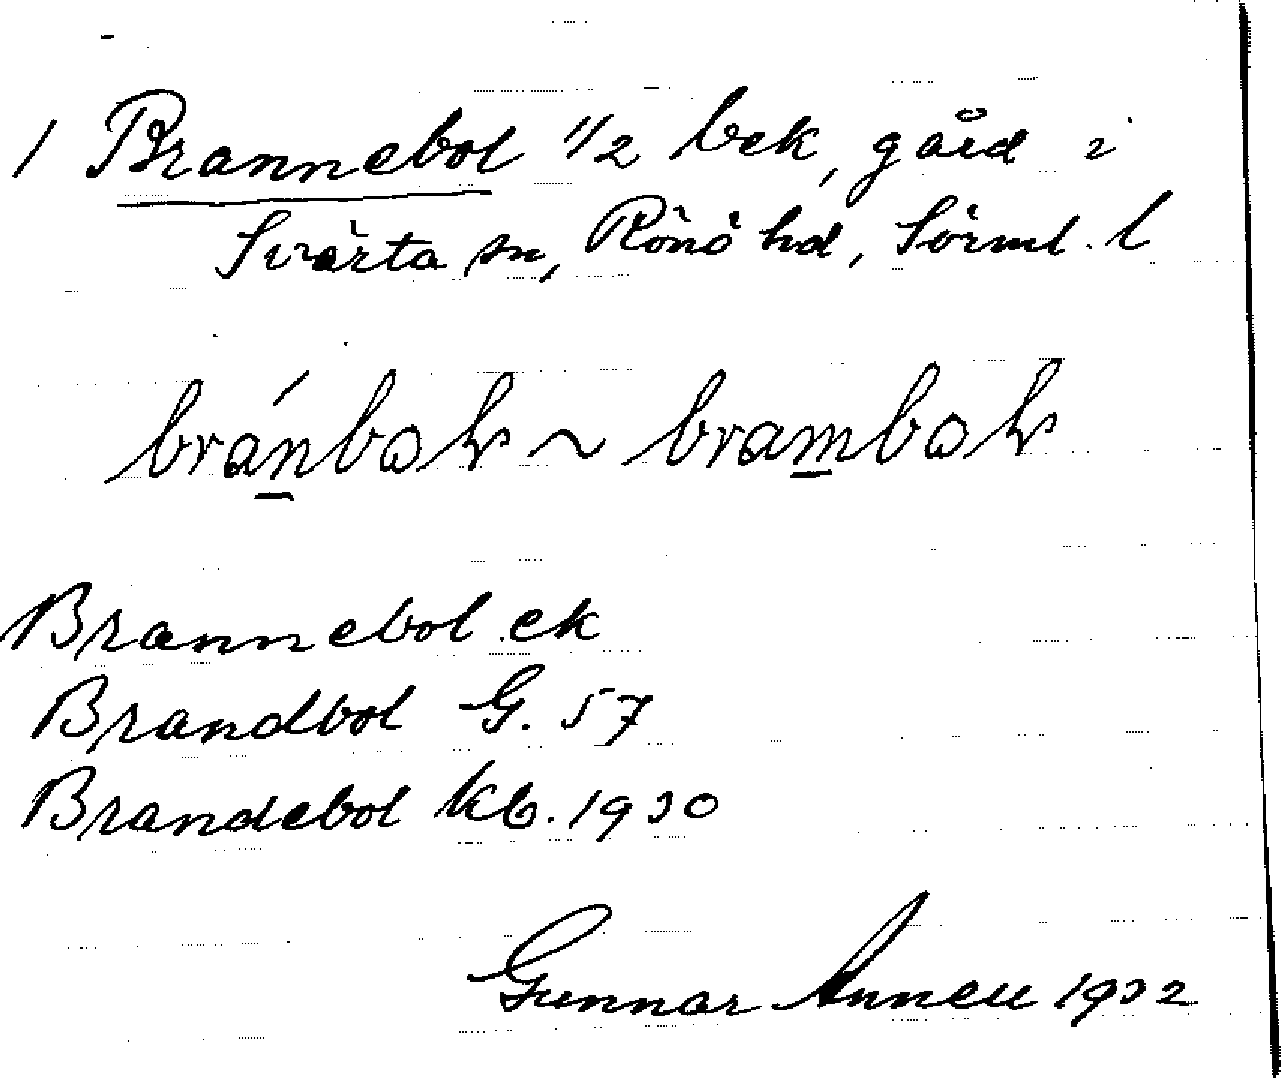 1 Brannebol 1/2 bek, gård i
Svärta sn, Rönö hd, Sörml. l
bránboḷ ~ bramboḷ
Brannebol ek
Brandbol G. 57
Brandebol kb. 1930
Gunnar Annell 1932